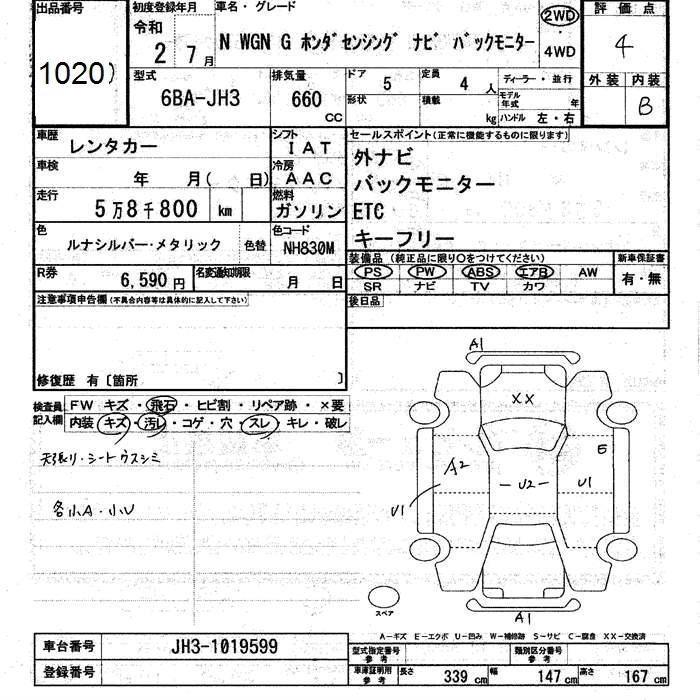 出品番号 初度登録年月 車名・グレード 2WD 評価点
令和 2 7月 N WGN G ホンダセンシング ナビ バックモニター ・ 4WD 4
1020)
型式 排気量 ドア 5 定員 4 人 ディーラー・並行 外装 内装
6BA-JH3 660 CC 形状 積載 kg モデル年式 年 B
ハンドル 左・右
車歴 レンタカー シフト IAT セールスポイント(正常に機能するものに限ります)
車検 年 月( 日) 冷房 AAC 外ナビ
走行 5万8千800 km 燃料 ガソリン バックモニター
色 ルナシルバー・メタリック 色替 色コード NH830M ETC
キーフリー
R券 6,590円 名変通知期限 月 日 装備品(純正品に限り○をつけてください) 新車保証書
PS PW ABS エアB AW 有・無
SR ナビ TV カワ
注意事項申告欄(不具合内容等は具体的に記入して下さい) 後日品
修復歴 有〔箇所 〕
検査員記入欄 FW キズ・飛石・ヒビ割・リペア跡・×要
内装 キズ・汚レ・コゲ・穴・スレ・キレ・破レ
天張り・シートウスシミ
各小A・小U
A1
XX
A2 E
U2 U1
U1
スペア A1
A-キズ E-エクボ U-凹み W-補修跡 S-サビ C-腐食 XX-交換済
車台番号 JH3-1019599 型式指定番号 参考 類別区分番号 参考
登録番号 車庫証明用 参考 長さ 339 cm 幅 147 cm 高さ 167 cm